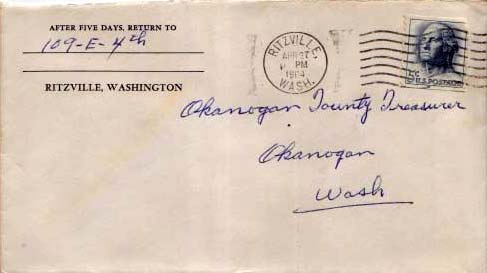 AFTER FIVE DAYS, RETURN TO
109-E-4th
RITZVILLE, WASHINGTON
RITZVILLE,
APR 27
PM
1964
WASH.
5¢
U.S. POSTAGE
Okanogan County Treasurer
Okanogan
Wash